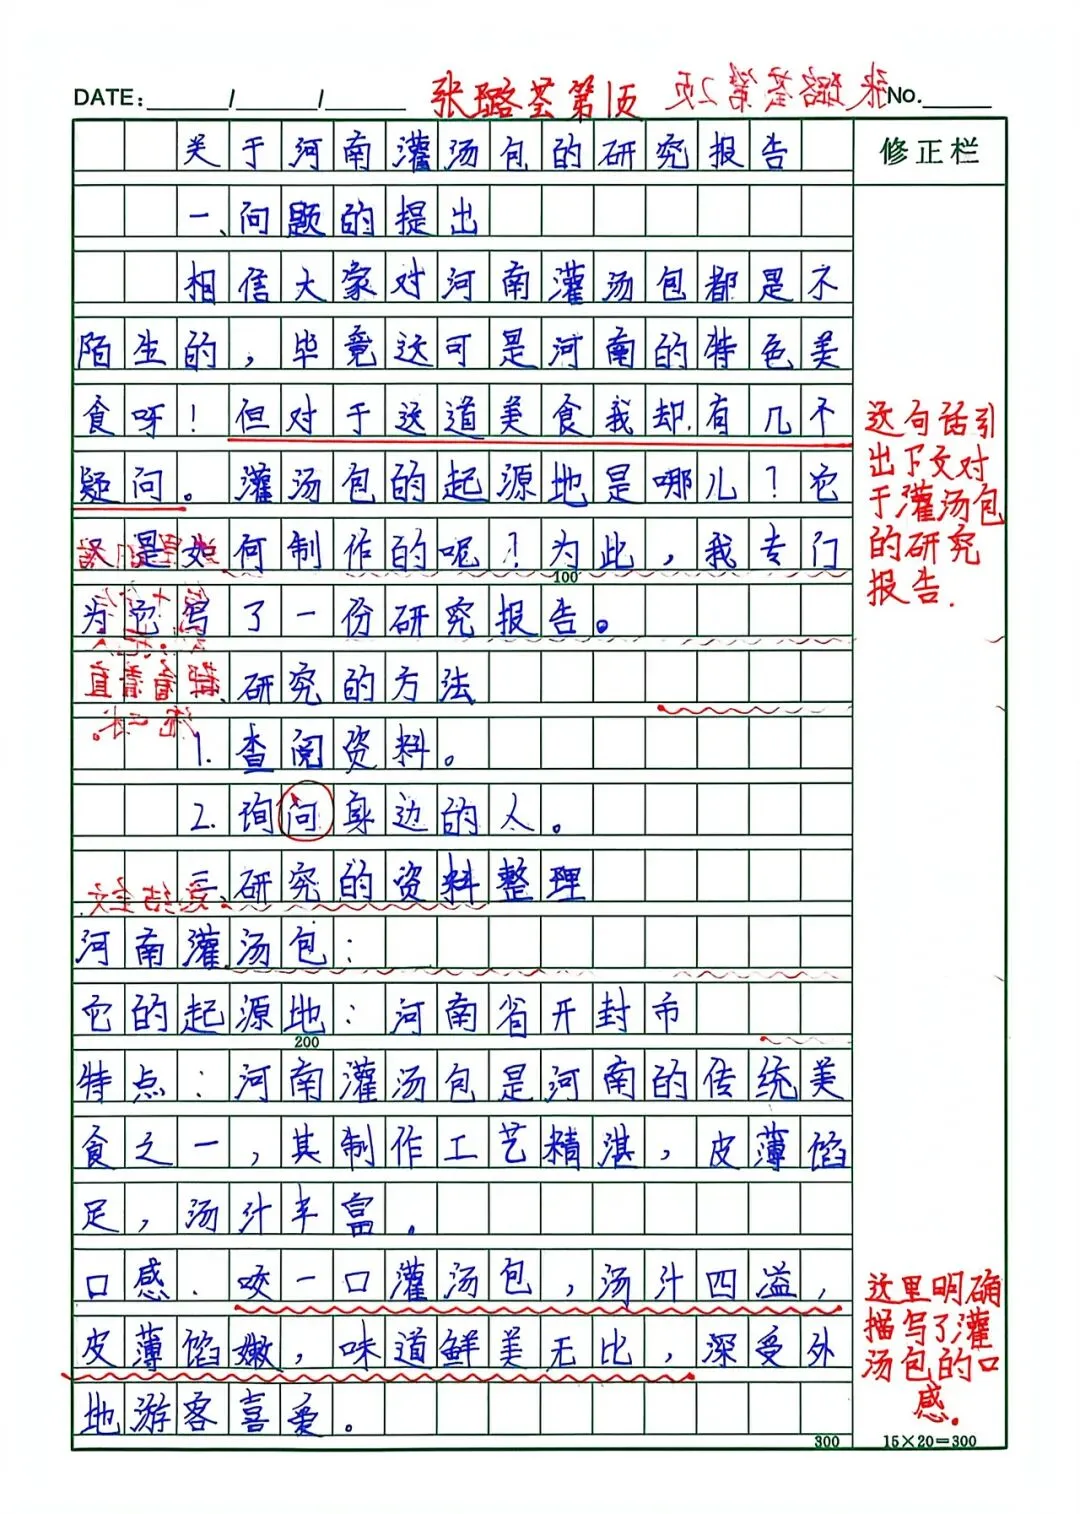 DATE: / / 张璐荟第1页 No.
关于河南灌汤包的研究报告
修正栏
一、问题的提出
相信大家对河南灌汤包都是不
陌生的，毕竟这可是河南的特色美
食呀！但对于这道美食我却有几个
疑问。灌汤包的起源地是哪儿？它
又是如何制作的呢？为此，我专门
100
为它写了一份研究报告。
研究的方法
1.查阅资料。
2.询问身边的人。
三、研究的资料整理
河南灌汤包：
它的起源地：河南省开封市
200
特点：河南灌汤包是河南的传统美
食之一，其制作工艺精湛，皮薄馅
足，汤汁丰富。
口感：咬一口灌汤包，汤汁四溢，
皮薄馅嫩，味道鲜美无比，深受外
地游客喜爱。
300
15×20=300
这句话引
出下文对
于灌汤包
的研究
报告.
这里明确
描写了灌
汤包的口
感。